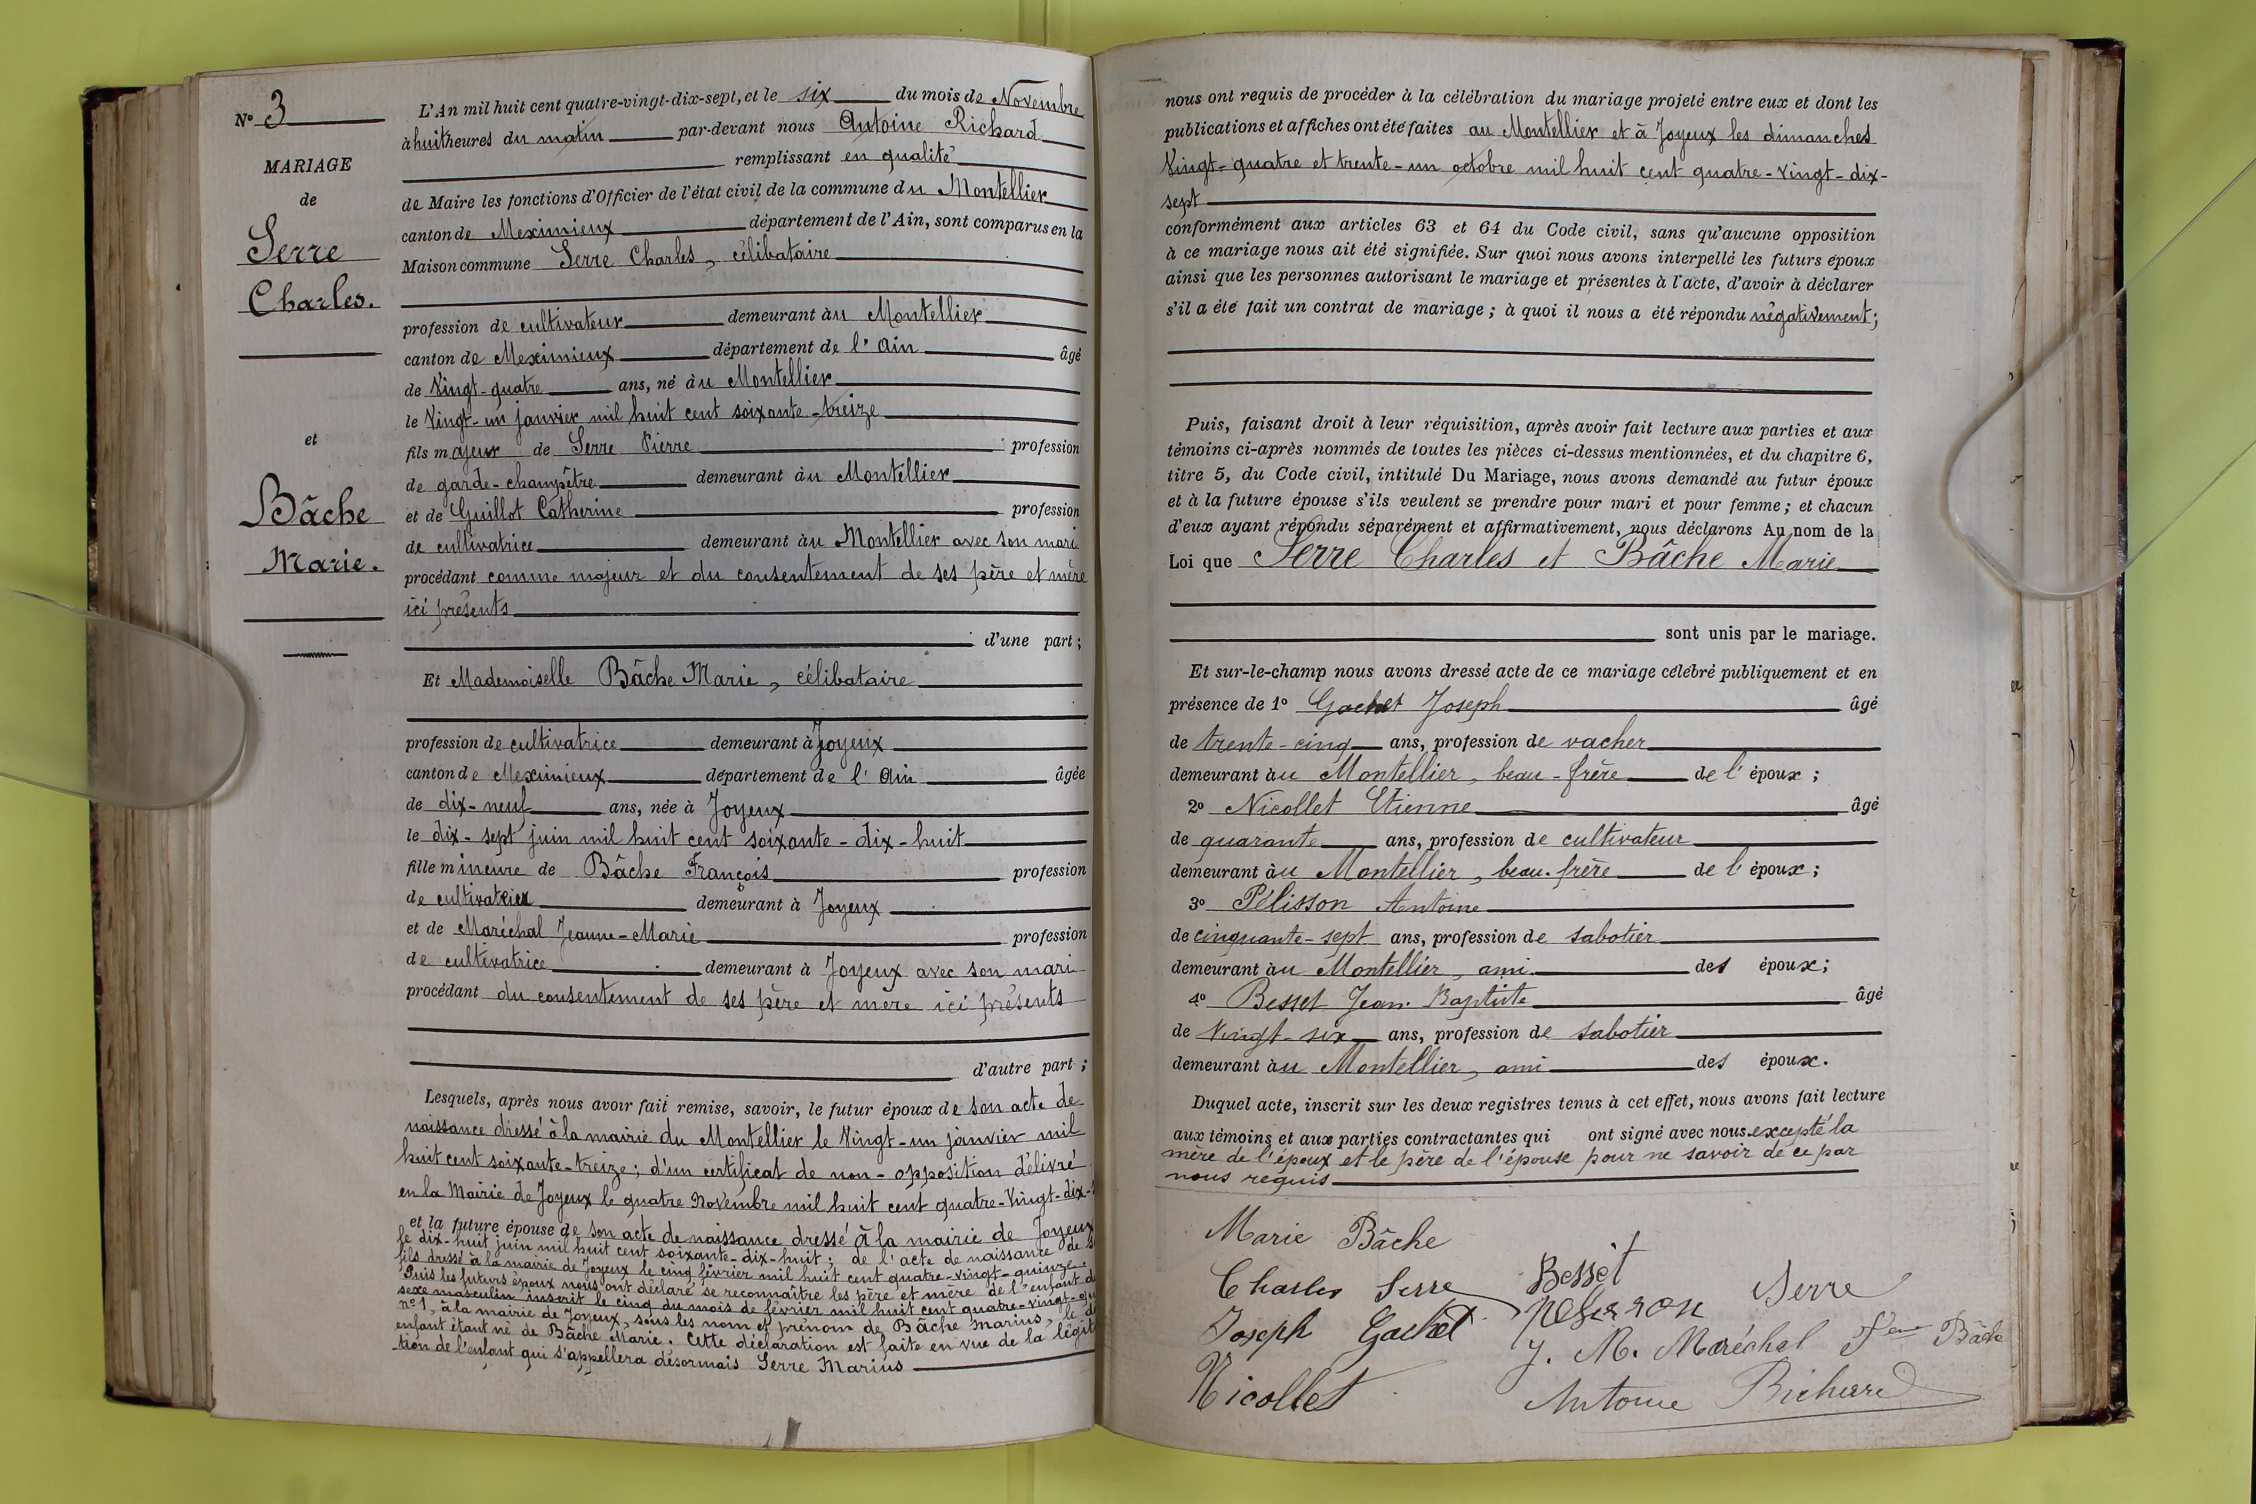 N° 3
MARIAGE
de
Serre
Charles.
et
Bâche
Marie.
L'An mil huit cent quatre-vingt-dix-sept, et le six du mois de Novembre
à huit heures du matin par-devant nous Antoine Richard
remplissant en qualité
de Maire les fonctions d'Officier de l'état civil de la commune du Montellier
canton de Meximieux département de l'Ain, sont comparus en la
Maison commune Serre Charles, célibataire
profession de cultivateur demeurant au Montellier
canton de Meximieux département de l'Ain âgé
de Vingt-quatre ans, né au Montellier
le Vingt-un janvier mil huit cent soixante-treize
fils majeur de Serre Pierre profession
de garde-champêtre demeurant au Montellier
et de Guillot Catherine profession
de cultivatrice demeurant au Montellier avec son mari
procédant comme majeur et du consentement de ses père et mère
ici présents
d'une part;
Et Mademoiselle Bâche Marie, célibataire
profession de cultivatrice demeurant à Joyeux
canton de Meximieux département de l'Ain âgée
de dix-neuf ans, née à Joyeux
le dix-sept juin mil huit cent soixante-dix-huit
fille mineure de Bâche François profession
de cultivateur demeurant à Joyeux
et de Maréchal Jeanne-Marie profession
de cultivatrice demeurant à Joyeux avec son mari
procédant du consentement de ses père et mère ici présents
d'autre part;
Lesquels, après nous avoir fait remise, savoir, le futur époux de son acte de
naissance dressé à la mairie du Montellier le Vingt-un janvier mil
huit cent soixante-treize; d'un certificat de non-opposition délivré
en la Mairie de Joyeux le quatre Novembre mil huit cent quatre-Vingt-dix-
et la future épouse de son acte de naissance dressé à la mairie de Joyeux
le dix-huit juin mil huit cent soixante-dix-huit; de l'acte de naissance de
fils dressé à la mairie de Joyeux le cinq février mil huit cent quatre-vingt-quinze.
Puis les futurs époux nous ont déclaré se reconnaître les père et mère de l'enfant
sexe masculin inscrit le cinq du mois de février mil huit cent quatre-vingt-
n° 1, à la mairie de Joyeux, sous les nom et prénom de Bâche Marius, le
enfant étant né de Bâche Marie. Cette déclaration est faite en vue de la
-tion de l'enfant qui s'appellera désormais Serre Marius
nous ont requis de procéder à la célébration du mariage projeté entre eux et dont les
publications et affiches ont été faites au Montellier et à Joyeux les dimanches
Vingt-quatre et trente-un octobre mil huit cent quatre-Vingt-dix-
sept
conformément aux articles 63 et 64 du Code civil, sans qu'aucune opposition
à ce mariage nous ait été signifiée. Sur quoi nous avons interpellé les futurs époux
ainsi que les personnes autorisant le mariage et présentes à l'acte, d'avoir à déclarer
s'il a été fait un contrat de mariage; à quoi il nous a été répondu négativement;
Puis, faisant droit à leur réquisition, après avoir fait lecture aux parties et aux
témoins ci-après nommés de toutes les pièces ci-dessus mentionnées, et du chapitre 6,
titre 5, du Code civil, intitulé Du Mariage, nous avons demandé au futur époux
et à la future épouse s'ils veulent se prendre pour mari et pour femme; et chacun
d'eux ayant répondu séparément et affirmativement, nous déclarons Au nom de la
Loi que Serre Charles et Bâche Marie
sont unis par le mariage.
Et sur-le-champ nous avons dressé acte de ce mariage célébré publiquement et en
présence de 1° Gachet Joseph âgé
de trente-cinq ans, profession de vacher
demeurant au Montellier, beau-frère de l'époux;
2° Nicollet Etienne âgé
de quarante ans, profession de cultivateur
demeurant au Montellier, beau-frère de l'époux;
3° Pélisson Antoine
de cinquante-sept ans, profession de sabotier
demeurant au Montellier, ami des époux;
4° Besset Jean-Baptiste âgé
de Vingt-six ans, profession de sabotier
demeurant au Montellier, ami des époux.
Duquel acte, inscrit sur les deux registres tenus à cet effet, nous avons fait lecture
aux témoins et aux parties contractantes qui ont signé avec nous excepté la
mère de l'époux et le père de l'épouse pour ne savoir de ce par
nous requis
Marie Bâche
Charles Serre Besset Serre
Joseph Gachet pelisson
J. M. Maréchal Fme Bâche
Nicollet Antoine Richard